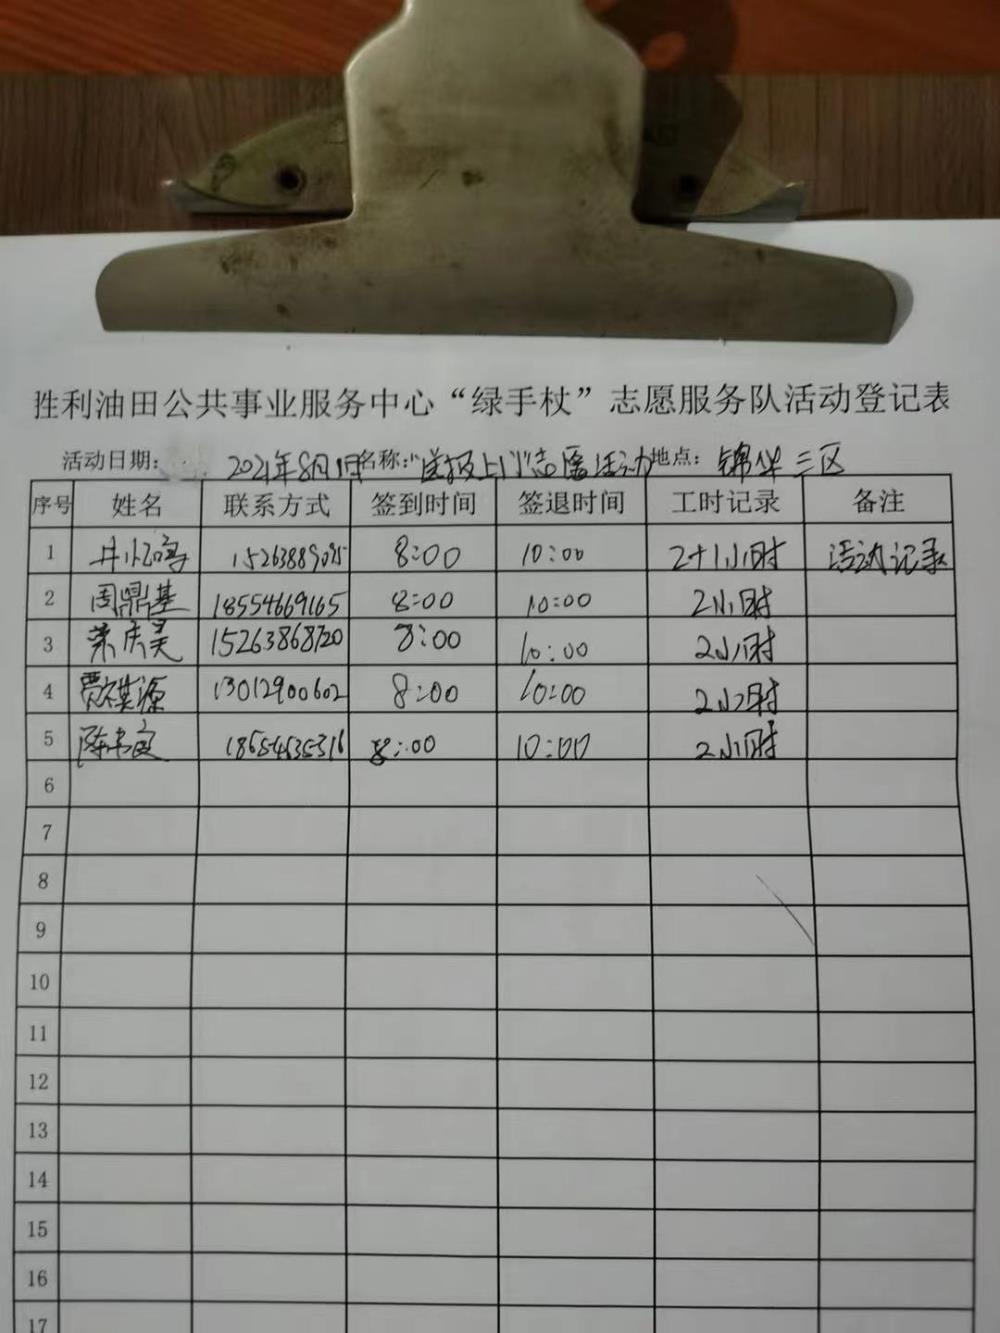 胜利油田公共事业服务中心“绿手杖”志愿服务队活动登记表
活动日期: 2021年8月1日 名称:“送报上门”志愿活动 地点: 锦华三区
序号 姓名 联系方式 签到时间 签退时间 工时记录 备注
1 8:00 10:00 2+1小时 活动记录
2 周鼎基 18554669165 8:00 10:00 2小时
3 荣庆昊 15263868720 8:00 10:00 2小时
4 贾祺源 13012900602 8:00 10:00 2小时
5 8:00 10:00 2小时
6
7
8
9
10
11
12
13
14
15
16
17